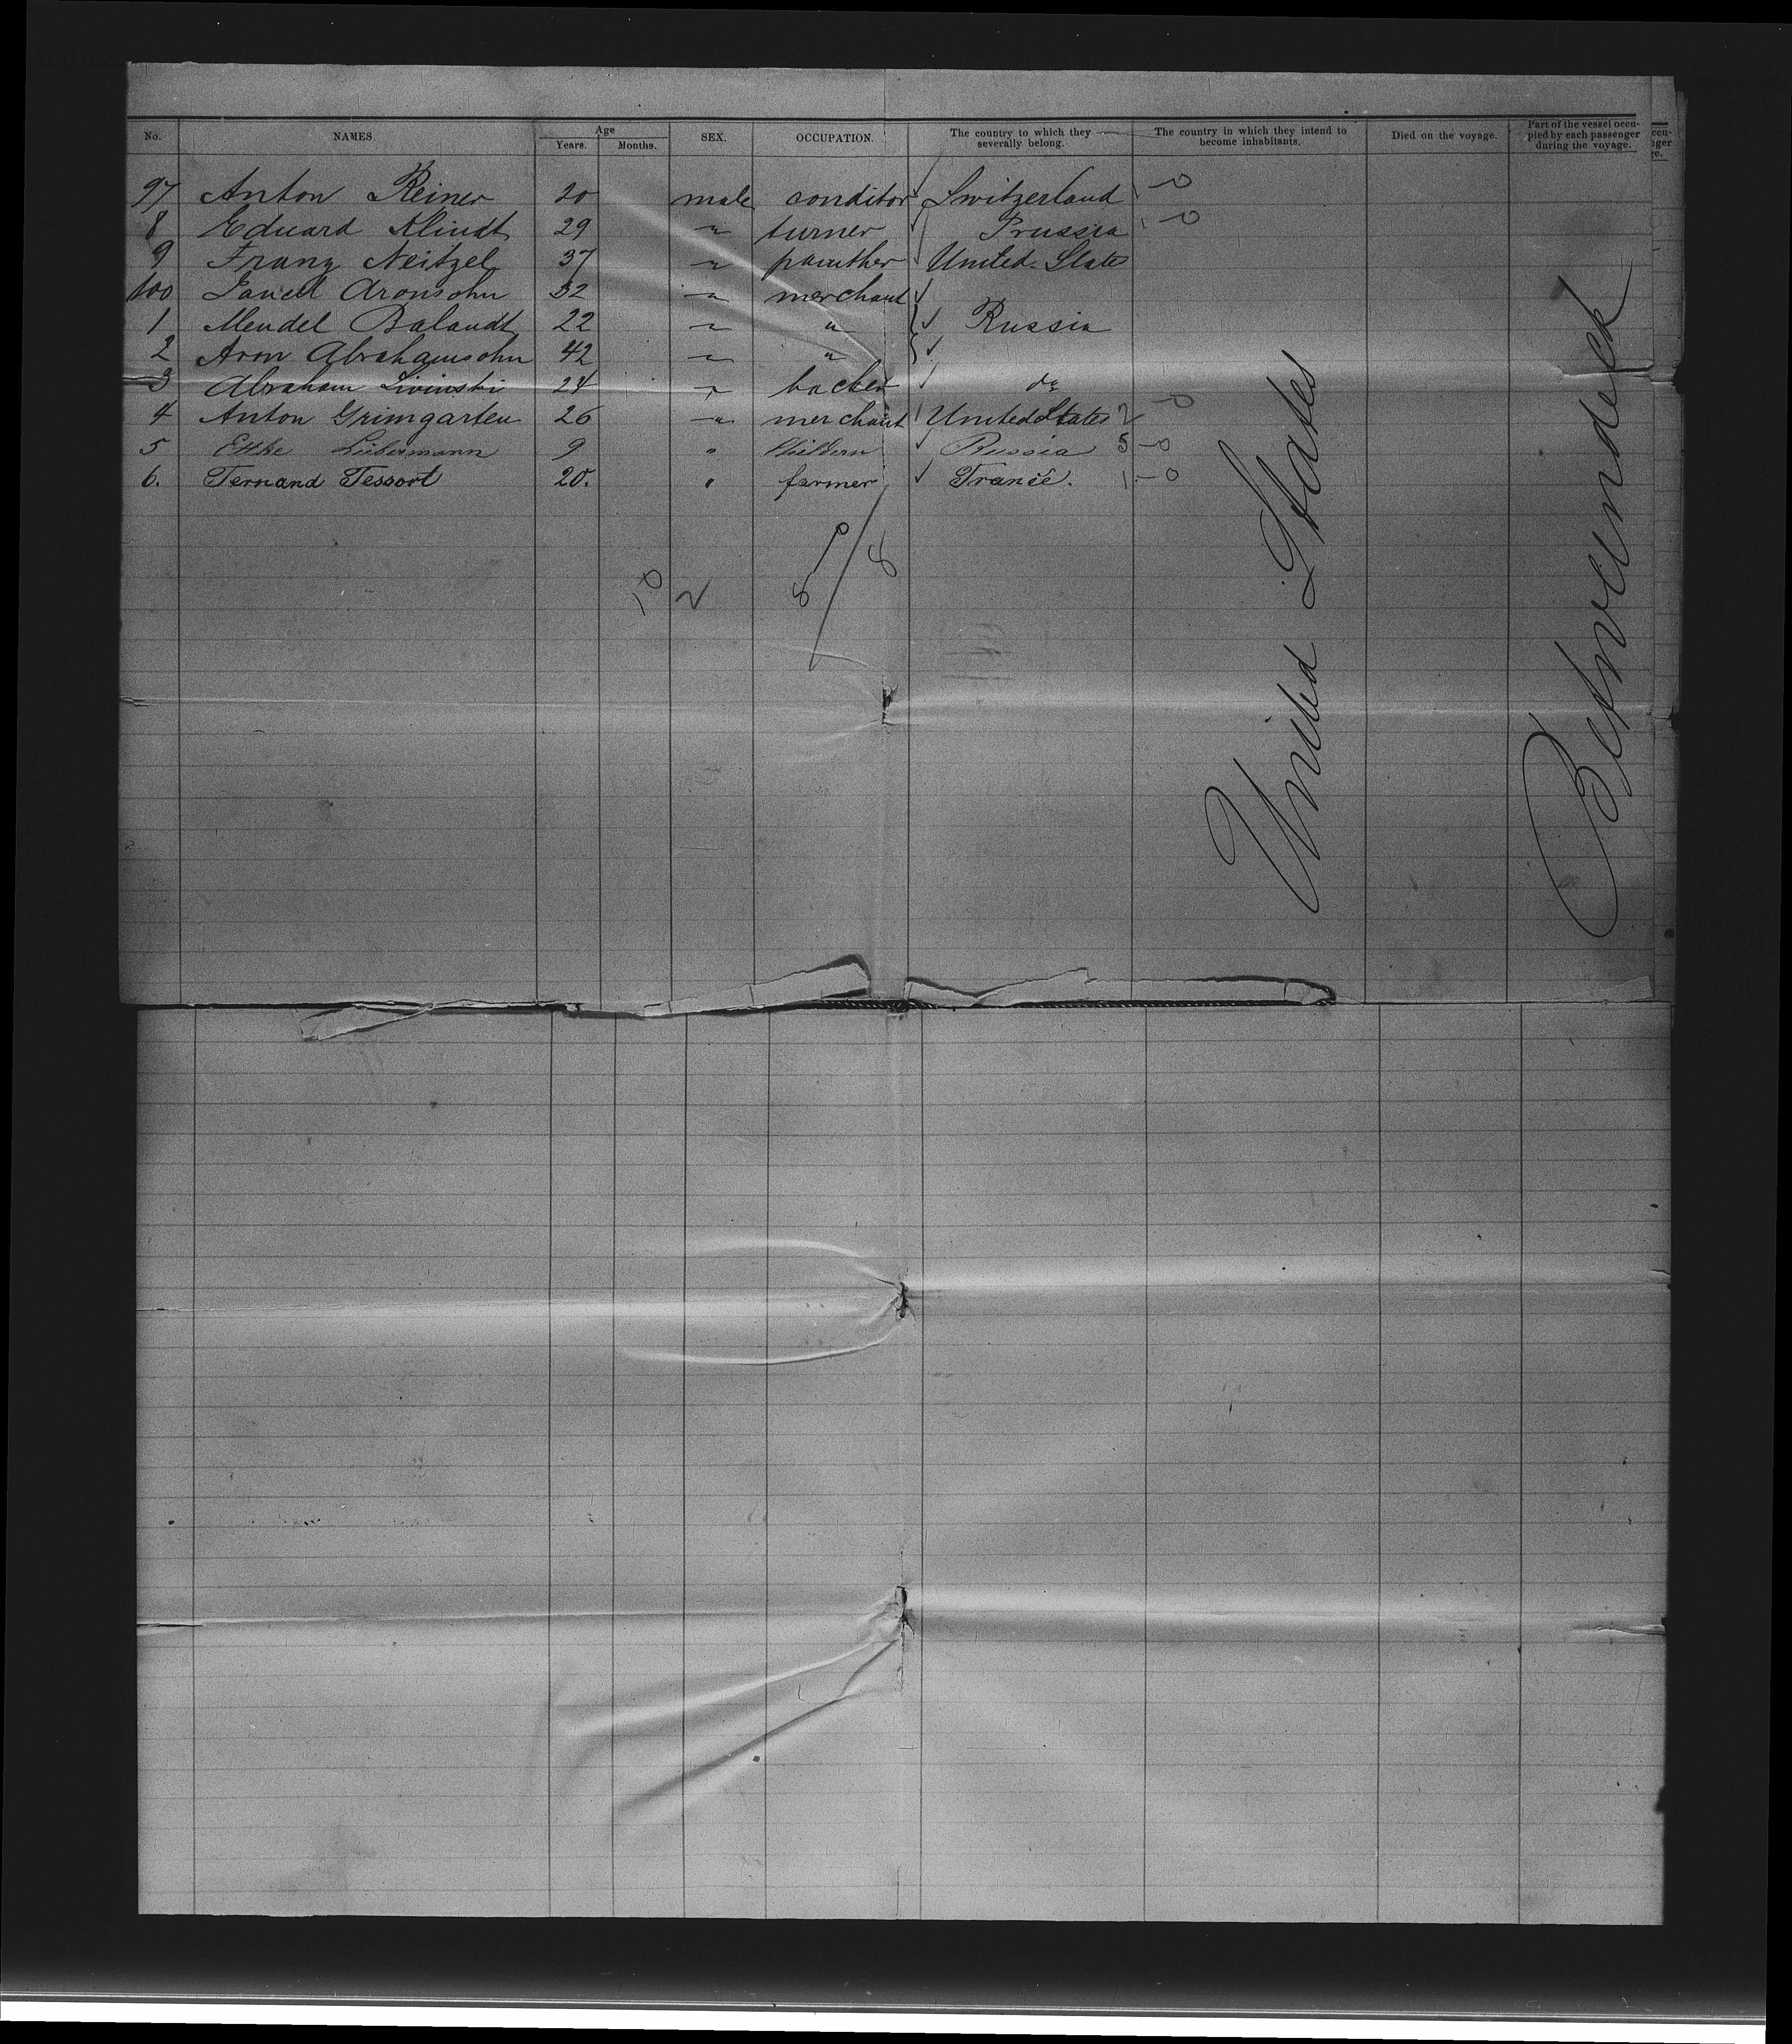 No. NAMES. Age Years. Months. SEX. OCCUPATION. The country to which they severally belong. The country in which they intend to become inhabitants. Died on the voyage. Part of the vessel occupied by each passenger during the voyage.
97 Anton Reiner 20 male conditor Switzerland 1-0
8 Eduard Klindt 29 " turner Prussia 1-0
9 Franz Neitzel 37 " painther United States
100 Aronsohn 32 " merchant
1 Mendel Balandt 22 " " Russia
2 Aron Abrahamsohn 42 " "
3 Abraham Livinski 24 " backer do
4 Anton Grimgarten 26 " merchant United States 2 0
5 Ettke Liebermann 9 " Children Russia 5-0
6. Fernand Tessort 20. " farmer France. 1-0
10 2 8 0 / 8
United States
Betweendeck